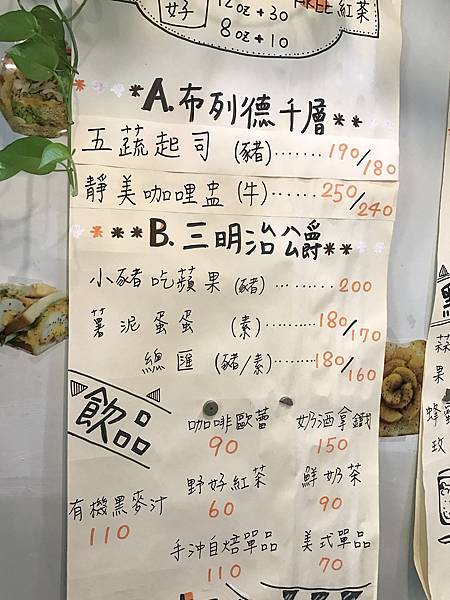 好 12oz+30 FREE 紅茶
8oz+10
A.布列德千層
五蔬起司 (豬)……190/180
靜美咖哩盅(牛)……250/240
B.三明治公爵
小豬吃蘋果(豬)………200
薯泥蛋蛋 (素)………180/170
總匯 (豬/素)………180/160
飲品
咖啡歐蕾 奶酒拿鐵
90 150
野好紅茶 鮮奶茶
有機黑麥汁 60 90
110 手沖自焙單品 美式單品
110 70
蒜
果
蜂
玫